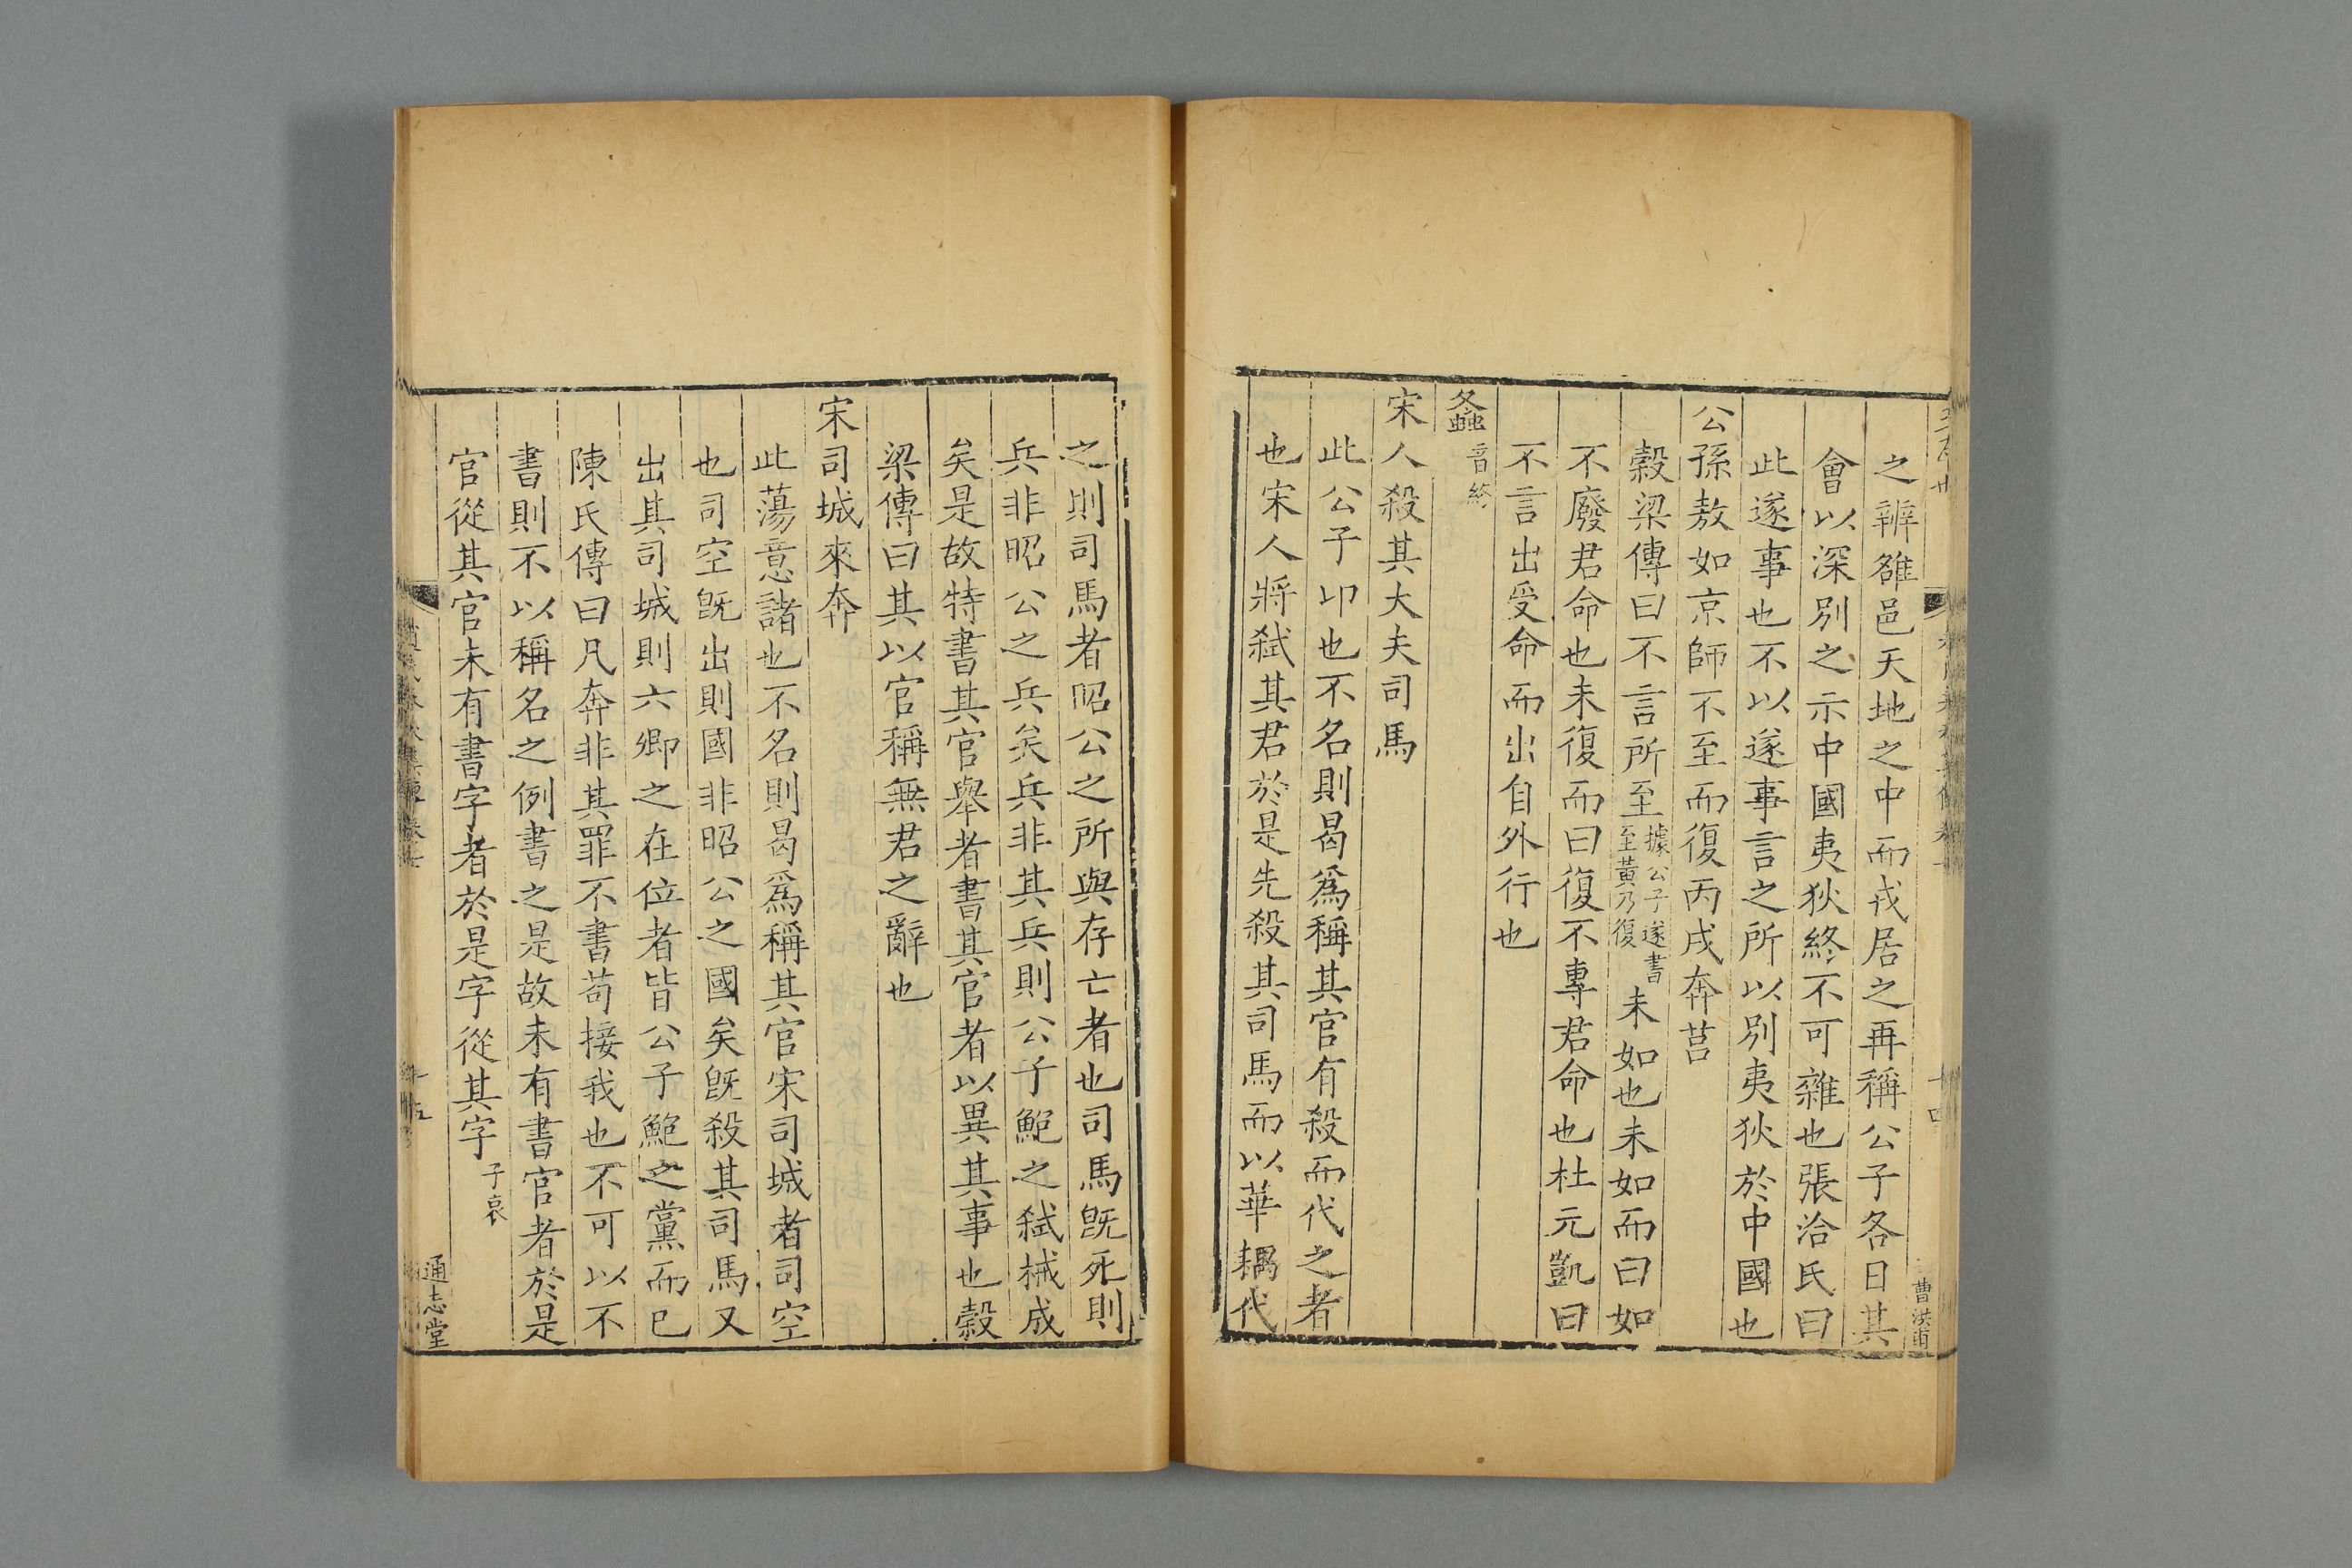 之辨雒邑天地之中而戎居之再稱公子各日其
會以深別之示中國夷狄終不可雜也張洽氏曰
此遂事也不以遂事言之所以別夷狄於中國也
公孫敖如京師不至而復丙戌奔莒
穀梁傳曰不言所至據公子遂書至黃乃復未如也未如而曰如
不廢君命也未復而曰復不專君命也杜元凱曰
不言出受命而出自外行也
螽音終
宋人殺其大夫司馬
此公子卬也不名則曷爲稱其官有殺而代之者
也宋人將弑其君於是先殺其司馬而以華耦代
之則司馬者昭公之所與存亡者也司馬旣死則
兵非昭公之兵矣兵非其兵則公子鮑之弑械成
矣是故特書其官舉者書其官者以異其事也穀
梁傳曰其以官稱無君之辭也
宋司城來奔
此蕩意諸也不名則曷爲稱其官宋司城者司空
也司空旣出則國非昭公之國矣旣殺其司馬又
出其司城則六卿之在位者皆公子鮑之黨而已
陳氏傳曰凡奔非其罪不書苟接我也不可以不
書則不以稱名之例書之是故未有書官者於是
官從其官未有書字者於是字從其字子哀
十四
曹洪甫
十五
通志堂